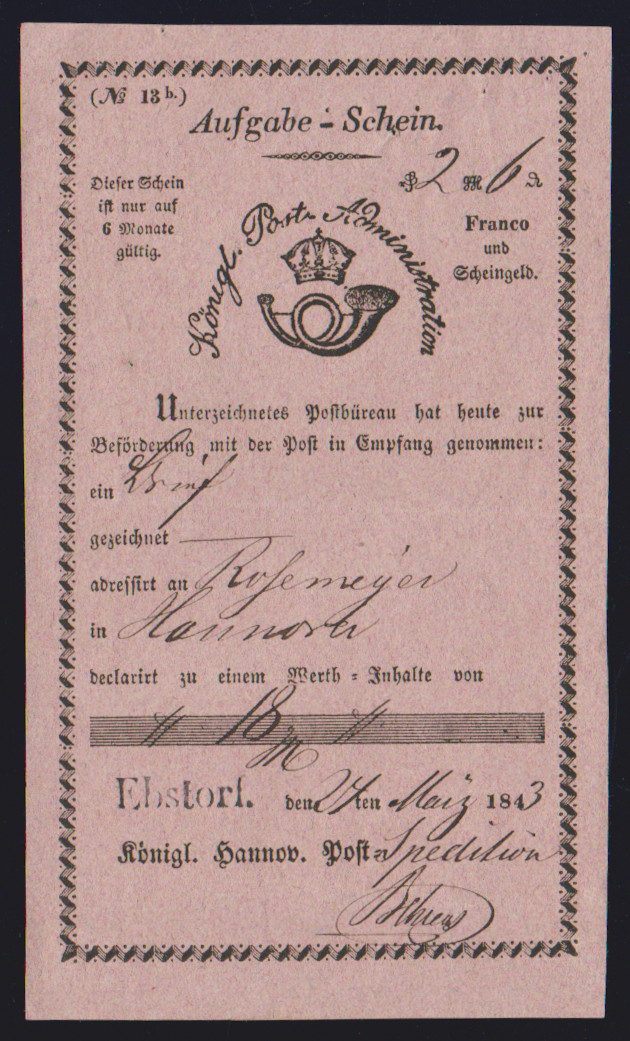 (№ 13 b.)
Aufgabe-Schein.
Dieser Schein
ist nur auf
6 Monate
gültig.
2 6
Franco
und
Scheingeld.
Königl. Post-Administration
Unterzeichnetes Postbüreau hat heute zur
Beförderung mit der Post in Empfang genommen:
ein Brief
gezeichnet —
adressirt an Rosemeyer
in Hannover
declarirt zu einem Werth-Inhalte von
18
Ebstorf. den 24ten März 1843
Königl. Hannov. Post-Spedition
Behrens